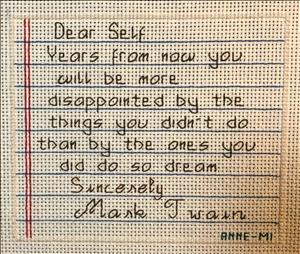 Dear Self
Years from now you
will be more
disappointed by the
things you didn't do
than by the ones you
did do so dream
Sincerely
Mark Twain
ANNE-MI